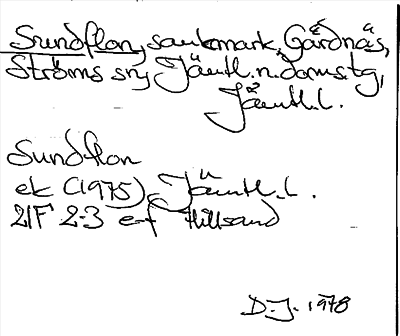 Sundflon, sankmark, Gärdnäs,
Ströms sn, Jämtl. n. doms.tg,
Jämtl. l.
Sundflon
ek (1975), Jämtl. l.
21F 2-3 e-f Hillsand
D.J. 1978